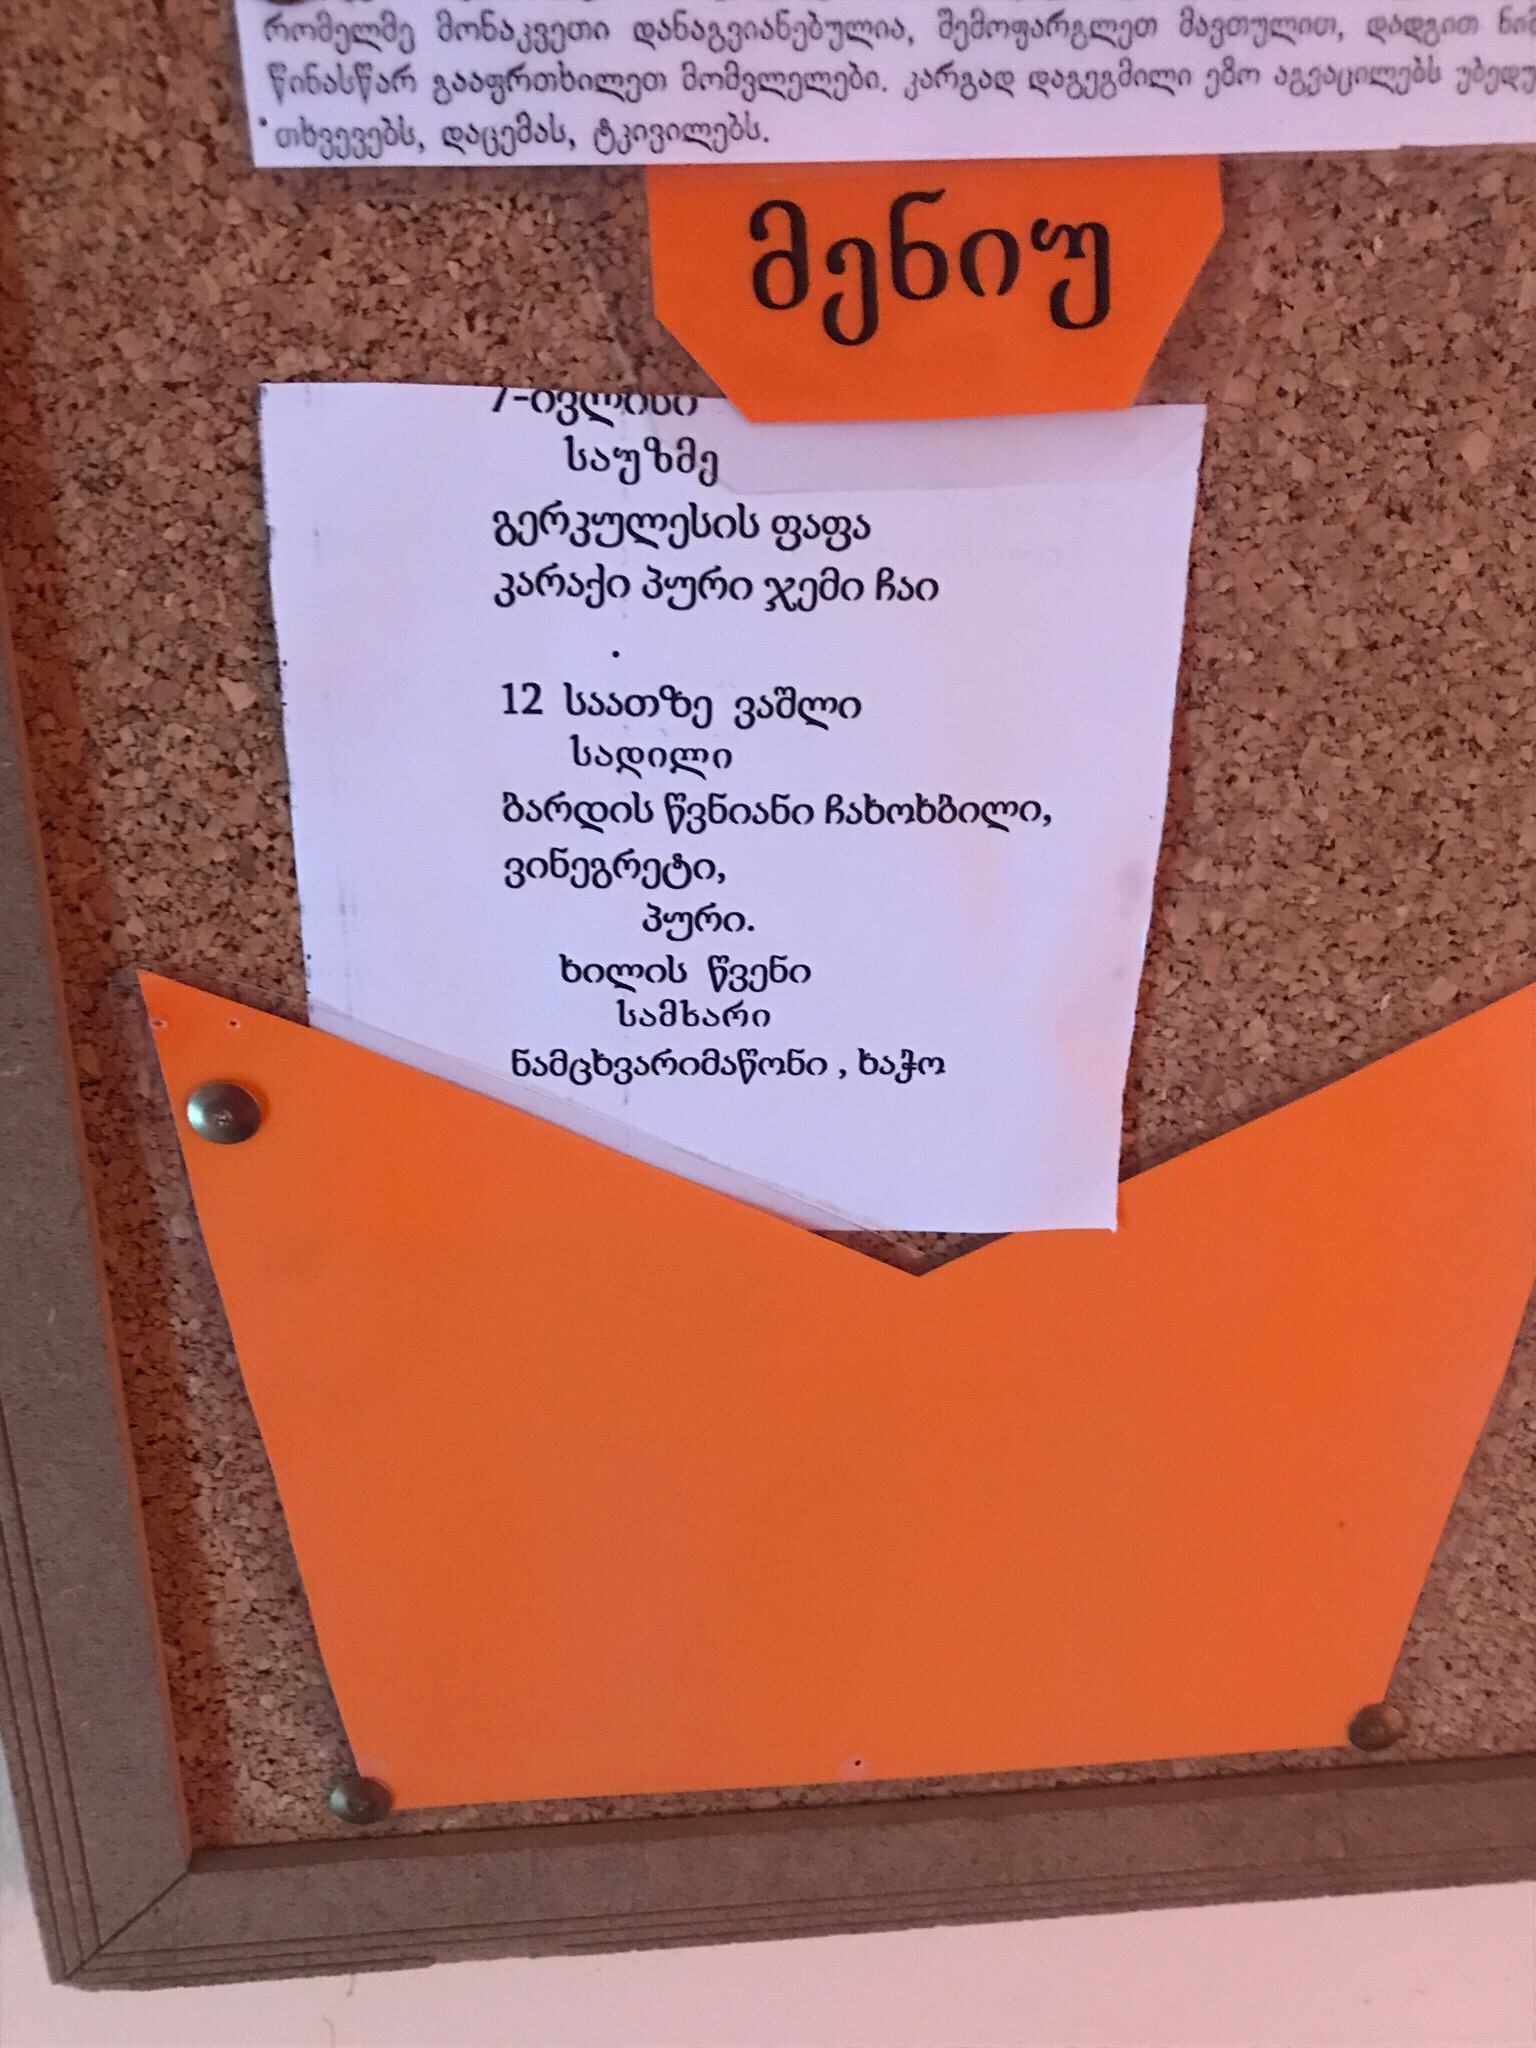 რომელმე მონაკვეთი დანაგვიანებულია, შემოფარგლეთ მავთულით, დადგით
წინასწარ გააფრთხილეთ მომვლელები. კარგად დაგეგმილი ეზო აგვაცილებს
თხვევებს, დაცემას, ტკივილებს.
მენიუ
7-ივლისი
საუზმე
გერკულესის ფაფა
კარაქი პური ჯემი ჩაი
.
12 საათზე ვაშლი
სადილი
ბარდის წვნიანი ჩახოხბილი,
ვინეგრეტი,
პური.
ხილის წვენი
სამხარი
ნამცხვარიმაწონი , ხაჭო